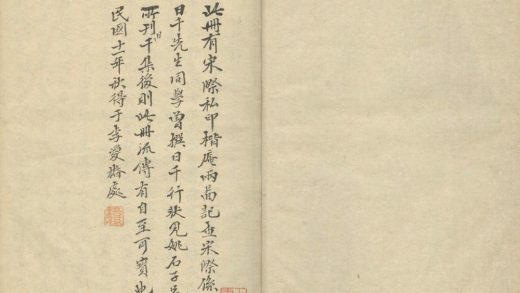 此冊有宋際私印楷庵兩圖記查宋際係
日千先生同學曾撰日千行狀見姚石子
所刊千集後則此冊流傳有自至可寶也
民國十一年秋得于李愛椿處